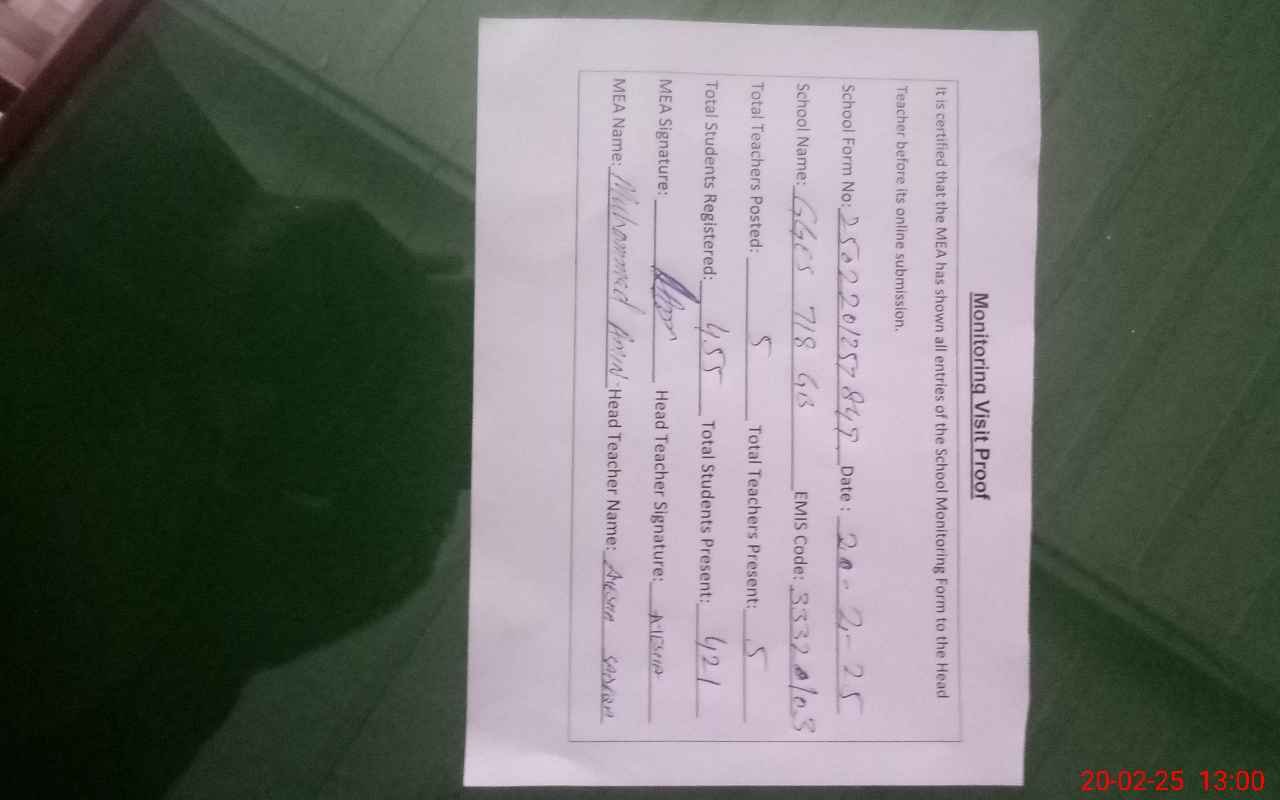 Monitoring Visit Proof
It is certified that the MEA has shown all entries of the School Monitoring Form to the Head
Teacher before its online submission.
School Form No: 2502201257849 Date: 20-2-25
School Name: GGES 718 GB EMIS Code: 33320103
Total Teachers Posted: 5 Total Teachers Present: 5
Total Students Registered: 455 Total Students Present: 421
MEA Signature: Head Teacher Signature: AIESHA
MEA Name: Muhammad Amin Head Teacher Name:
20-02-25 13:00